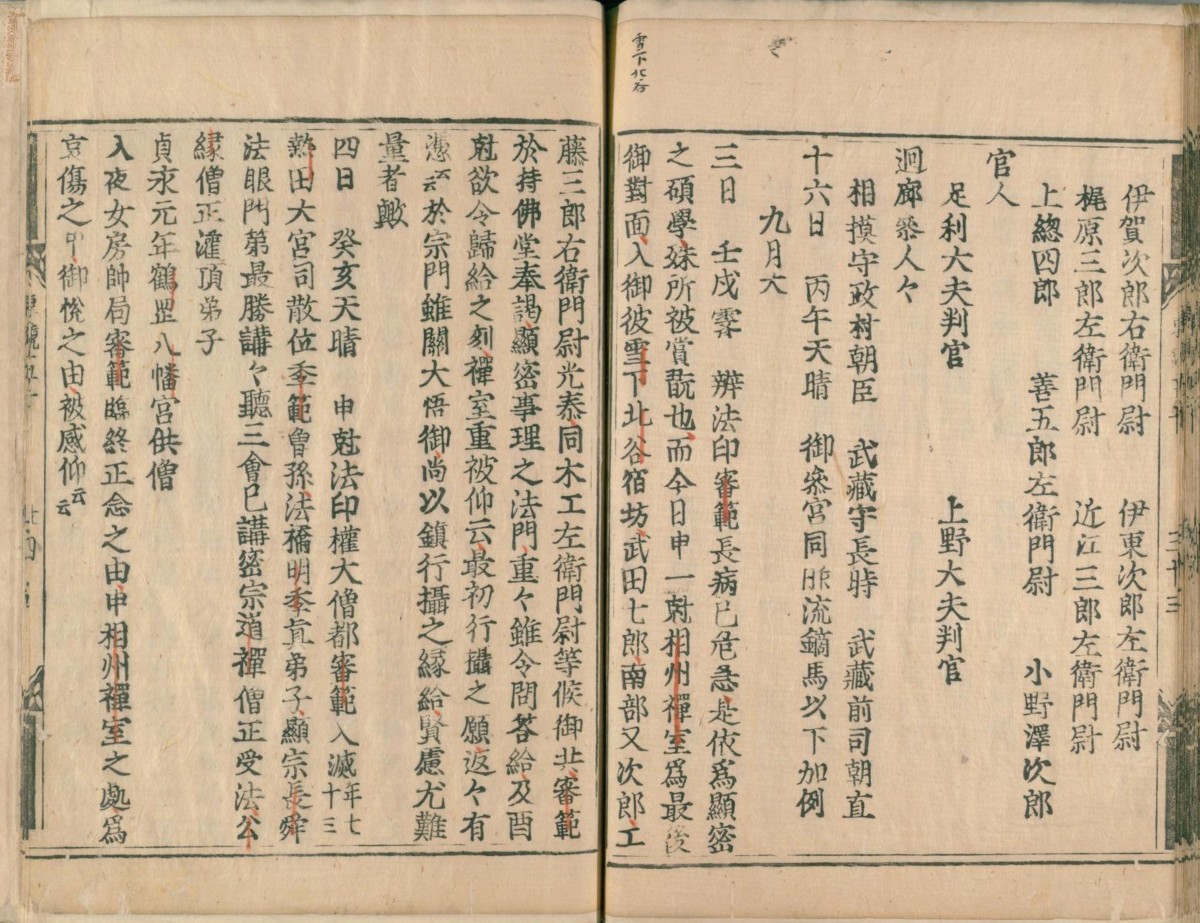 雪下北谷
伊賀次郎右衛門尉　伊東次郎左衛門尉
梶原三郎左衛門尉　近江三郎左衛門尉
上總四郎　善五郎左衛門尉　小野澤次郎
官人
足利大夫判官　上野大夫判官
廻廊参人々
相摸守政村朝臣　武藏守長時　武藏前司朝直
十六日　丙午天晴　御參宮同昨流鏑馬以下加例
九月大
三日　壬戌霽　辨法印審範長病已危急是依爲顯密
之碩學殊所被賞翫也而今日申一尅相州禪室爲最後
御對面入御彼雪下北谷宿坊武田七郎南部又次郎工
藤三郎右衛門尉光泰同木工左衛門尉等候御共審範
於持佛堂奉謁顯密事理之法門重々雖令問答給及酉
尅欲令歸給之刻禪室重被仰云最初行攝之願返々有
憑云云於宗門雖關大悟御尚以鎮行攝之縁給賢慮尤難
量者歟
四日　癸亥天晴　申尅法印權大僧都審範入滅年七十三
熱田大宮司散位季範曾孫法橋明季眞弟子顯宗長舜
法眼門弟最勝講々聽三會已講密宗道禪僧正受法公
縁僧正灌頂弟子
貞永元年鶴罡八幡宮供僧
入夜女房帥局審範臨終正念之由申相州禪室之處爲
哀傷之中御悅之由被感仰云云